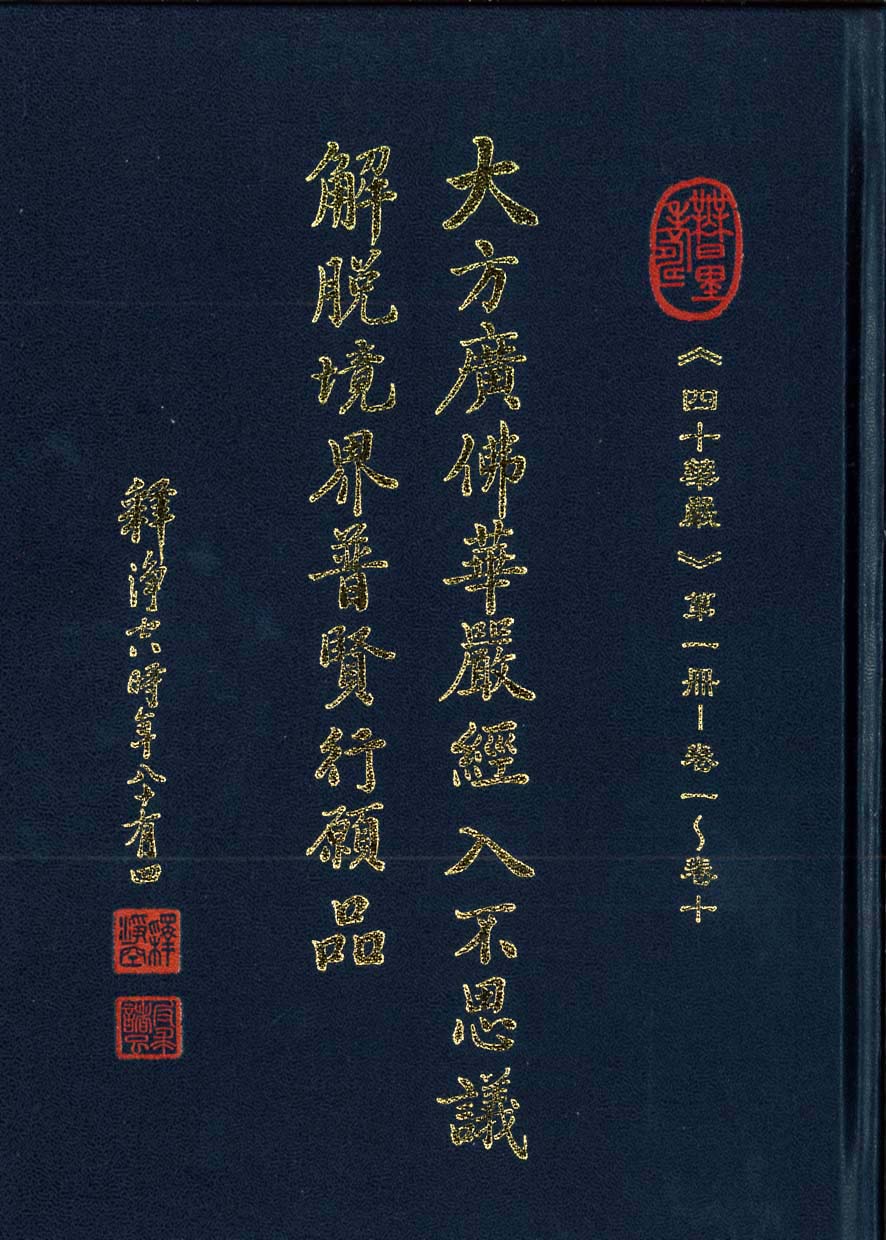 《四十華嚴》第一冊－卷一～卷十
大方廣佛華嚴經 入不思議
解脫境界普賢行願品
釋淨空時年八十有四
釋淨空